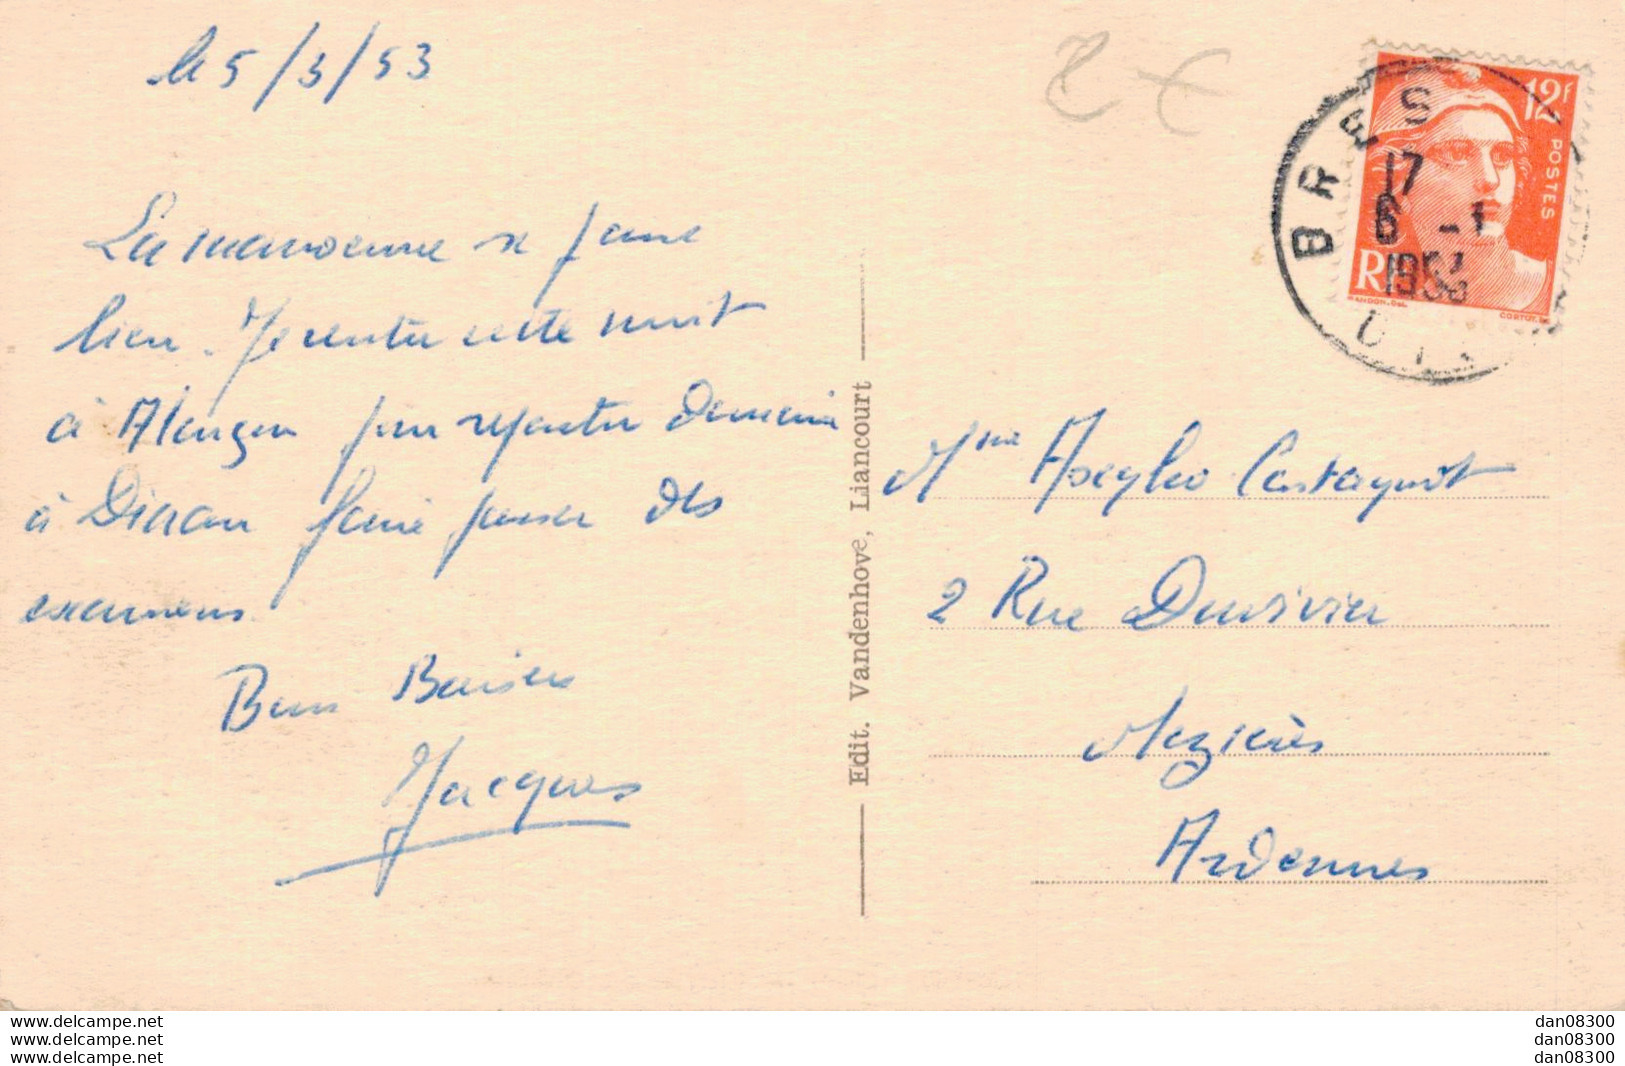 le 5/3/53
La manoeuvre se passe
bien. Je rentre cette nuit
à Alençon pour repartir demain
à Dinan faire passer des
examens.
Bons Baisers
Jacques
Edit. Vandenhove, Liancourt
8 €
12f
POSTES
RF
BRES
17
6 -1
1953
Mme Castagnet
2 Rue Duvivier
Mezières
Ardennes
www.delcampe.net
www.delcampe.net
www.delcampe.net
dan08300
dan08300
dan08300